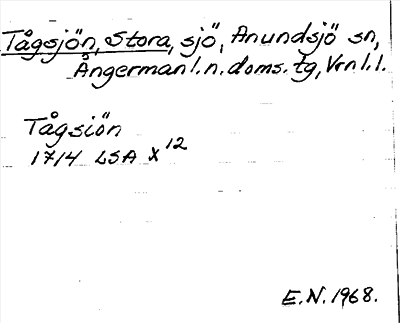 Tågsjön, Stora, sjö, Anundsjö sn,
Ångermanl.n.doms.tg, Vrnl.l.
Tågsiön
1714 LSA X 12
E.N. 1968.